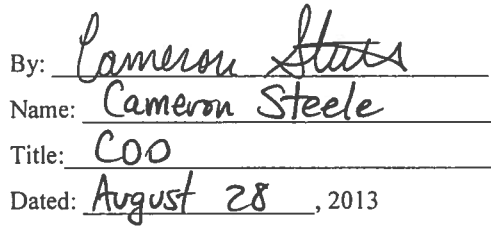 By: Cameron Steele
Name: Cameron Steele
Title: COO
Dated: August 28, 2013